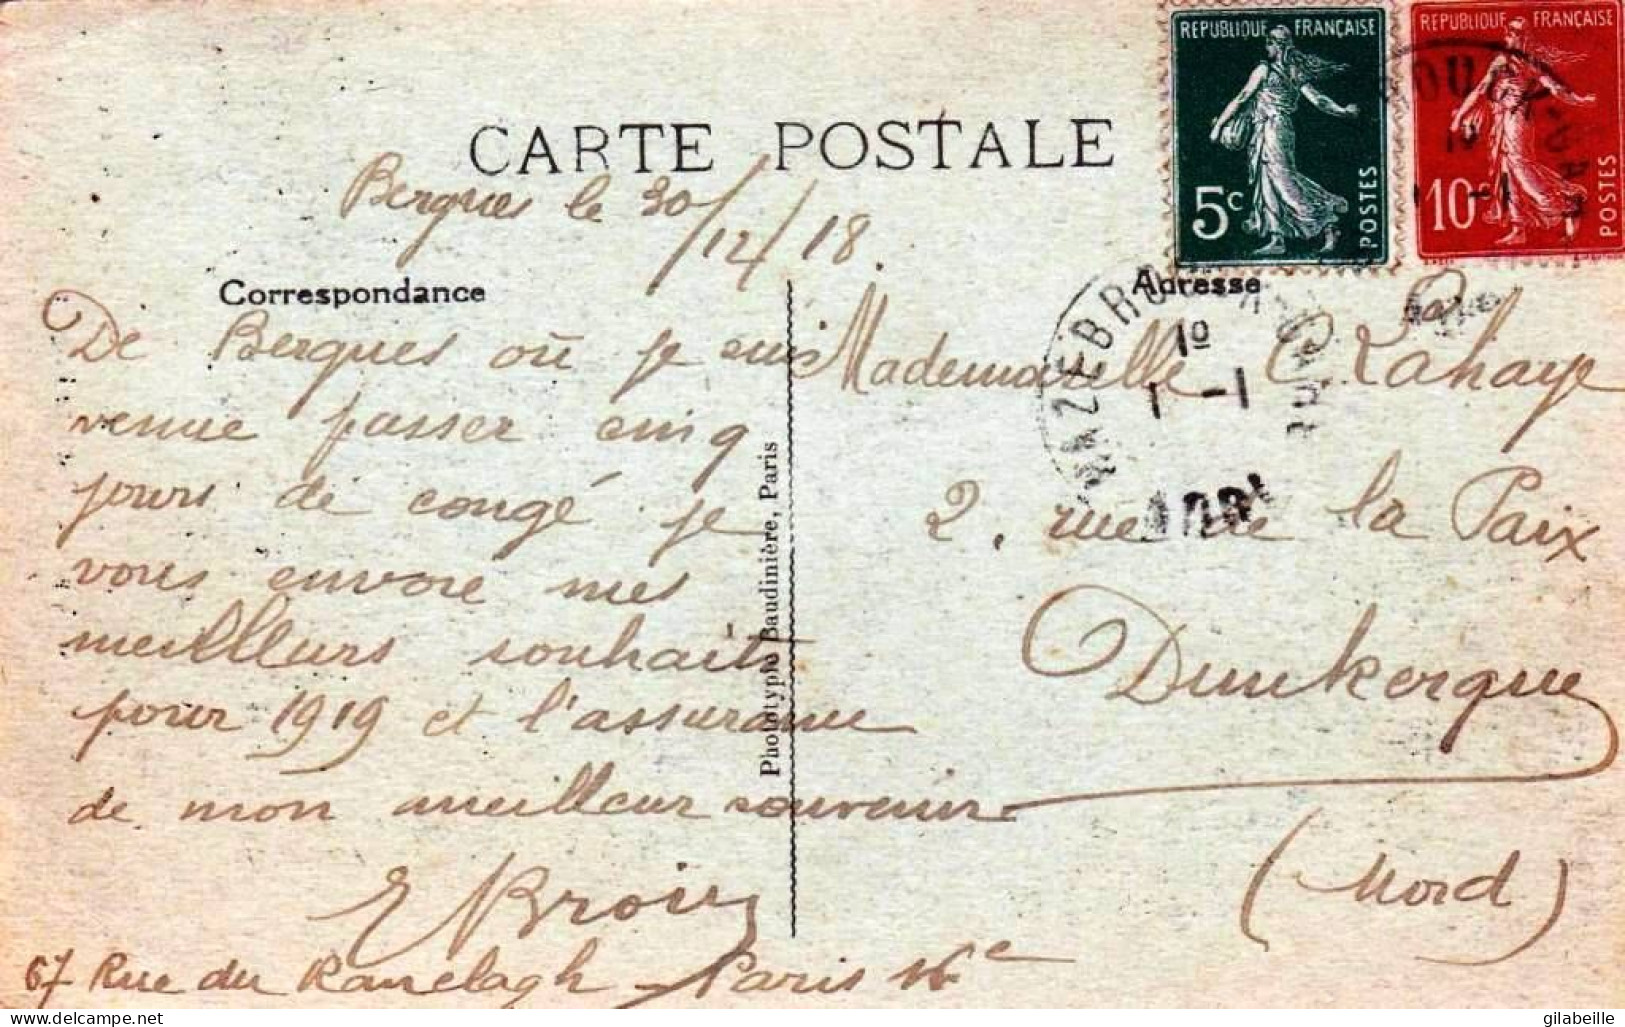 REPUBLIQUE FRANÇAISE
5c
POSTES
REPUBLIQUE FRANÇAISE
10
POSTES
CARTE POSTALE
Bergues le 30/12/18.
Correspondance
De Bergues où je suis
venue passer cinq
jours de congé je
vous envoie mes
meilleurs souhaits
pour 1919 et l'assurance
de mon meilleur souvenir
67 Rue du Ranelagh Paris 16e
Phototypie Baudinière, Paris
Adresse
HAZEBROUCK-GARE
10
1 -1
Mademoiselle Lahaye
2, rue de la Paix
Dunkerque
(Nord)
gilabeille